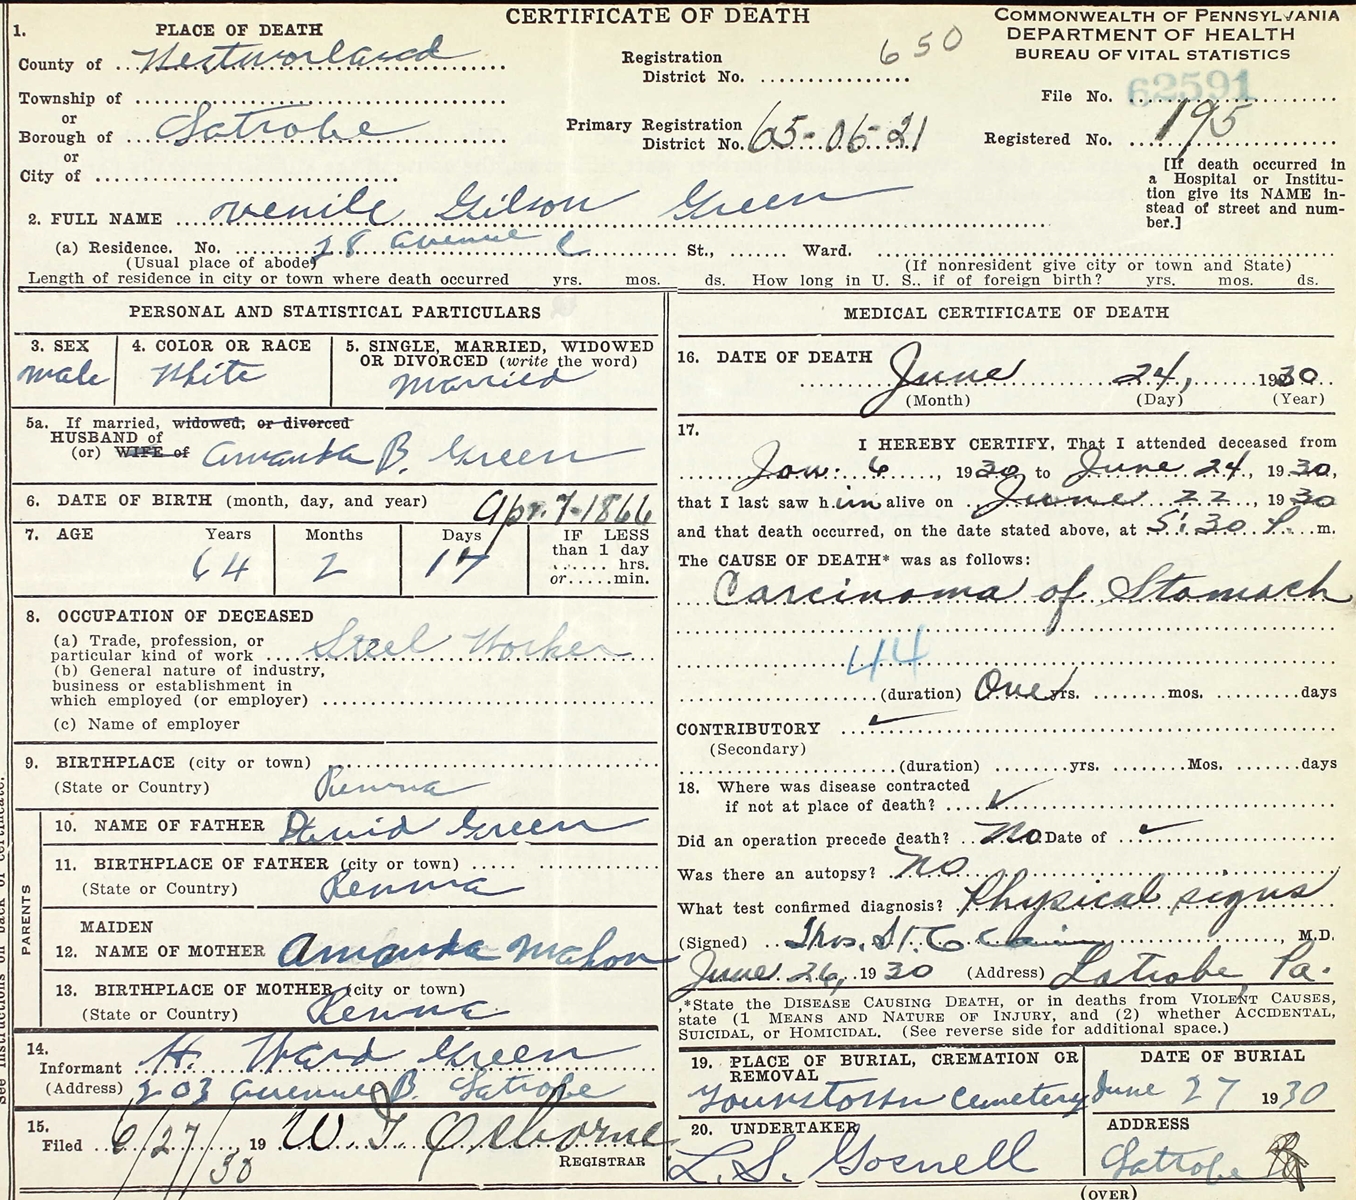 CERTIFICATE OF DEATH
COMMONWEALTH OF PENNSYLVANIA
DEPARTMENT OF HEALTH
BUREAU OF VITAL STATISTICS
1. PLACE OF DEATH
County of Westmorland
Township of
or
Borough of Latrobe
or
City of
Registration District No. 650
Primary Registration District No. 65-06-21
File No. 62591
Registered No. 195
[If death occurred in
a Hospital or Institu-
tion give its NAME in-
stead of street and num-
ber.]
2. FULL NAME Gilson Green
(a) Residence. No. 28 avenue C St., Ward.
(Usual place of abode)
(If nonresident give city or town and State)
Length of residence in city or town where death occurred yrs. mos. ds. How long in U. S., if of foreign birth? yrs. mos. ds.
PERSONAL AND STATISTICAL PARTICULARS
3. SEX
male
4. COLOR OR RACE
White
5. SINGLE, MARRIED, WIDOWED
OR DIVORCED (write the word)
Married
5a. If married, widowed, or divorced
HUSBAND of
(or) WIFE of Amanda B. Green
6. DATE OF BIRTH (month, day, and year) Apr. 7-1866
7. AGE Years Months Days IF LESS
than 1 day
hrs.
or min.
64 2 17
8. OCCUPATION OF DECEASED
(a) Trade, profession, or
particular kind of work Steel Worker
(b) General nature of industry,
business or establishment in
which employed (or employer)
(c) Name of employer
9. BIRTHPLACE (city or town)
(State or Country) Penna
PARENTS
10. NAME OF FATHER David Green
11. BIRTHPLACE OF FATHER (city or town)
(State or Country) Penna
MAIDEN
12. NAME OF MOTHER Amanda Mahon
13. BIRTHPLACE OF MOTHER (city or town)
(State or Country) Penna
14.
Informant H. Ward Green
(Address) 203 avenue B. Latrobe
15.
Filed 6/27/30 19 W. F. Osborne
REGISTRAR
MEDICAL CERTIFICATE OF DEATH
16. DATE OF DEATH
June 24, 1930
(Month) (Day) (Year)
17.
I HEREBY CERTIFY, That I attended deceased from
Jan. 6, 1930 to June 24, 1930,
that I last saw him alive on June 22, 1930
and that death occurred, on the date stated above, at 5:30 P. m.
The CAUSE OF DEATH* was as follows:
Carcinoma of Stomach
44
(duration) One yrs. mos. days
CONTRIBUTORY
(Secondary)
(duration) yrs. Mos. days
18. Where was disease contracted
if not at place of death?
Did an operation precede death? No Date of
Was there an autopsy? No
What test confirmed diagnosis? Physical signs
(Signed) Thos. St. Clair, M.D.
June 26, 1930 (Address) Latrobe, Pa.
*State the DISEASE CAUSING DEATH, or in deaths from VIOLENT CAUSES,
state (1 MEANS AND NATURE OF INJURY, and (2) whether ACCIDENTAL,
SUICIDAL, or HOMICIDAL. (See reverse side for additional space.)
19. PLACE OF BURIAL, CREMATION OR
REMOVAL
Youngstown Cemetery
DATE OF BURIAL
June 27 1930
20. UNDERTAKER
L. S. Gosnell
ADDRESS
Latrobe
(OVER)